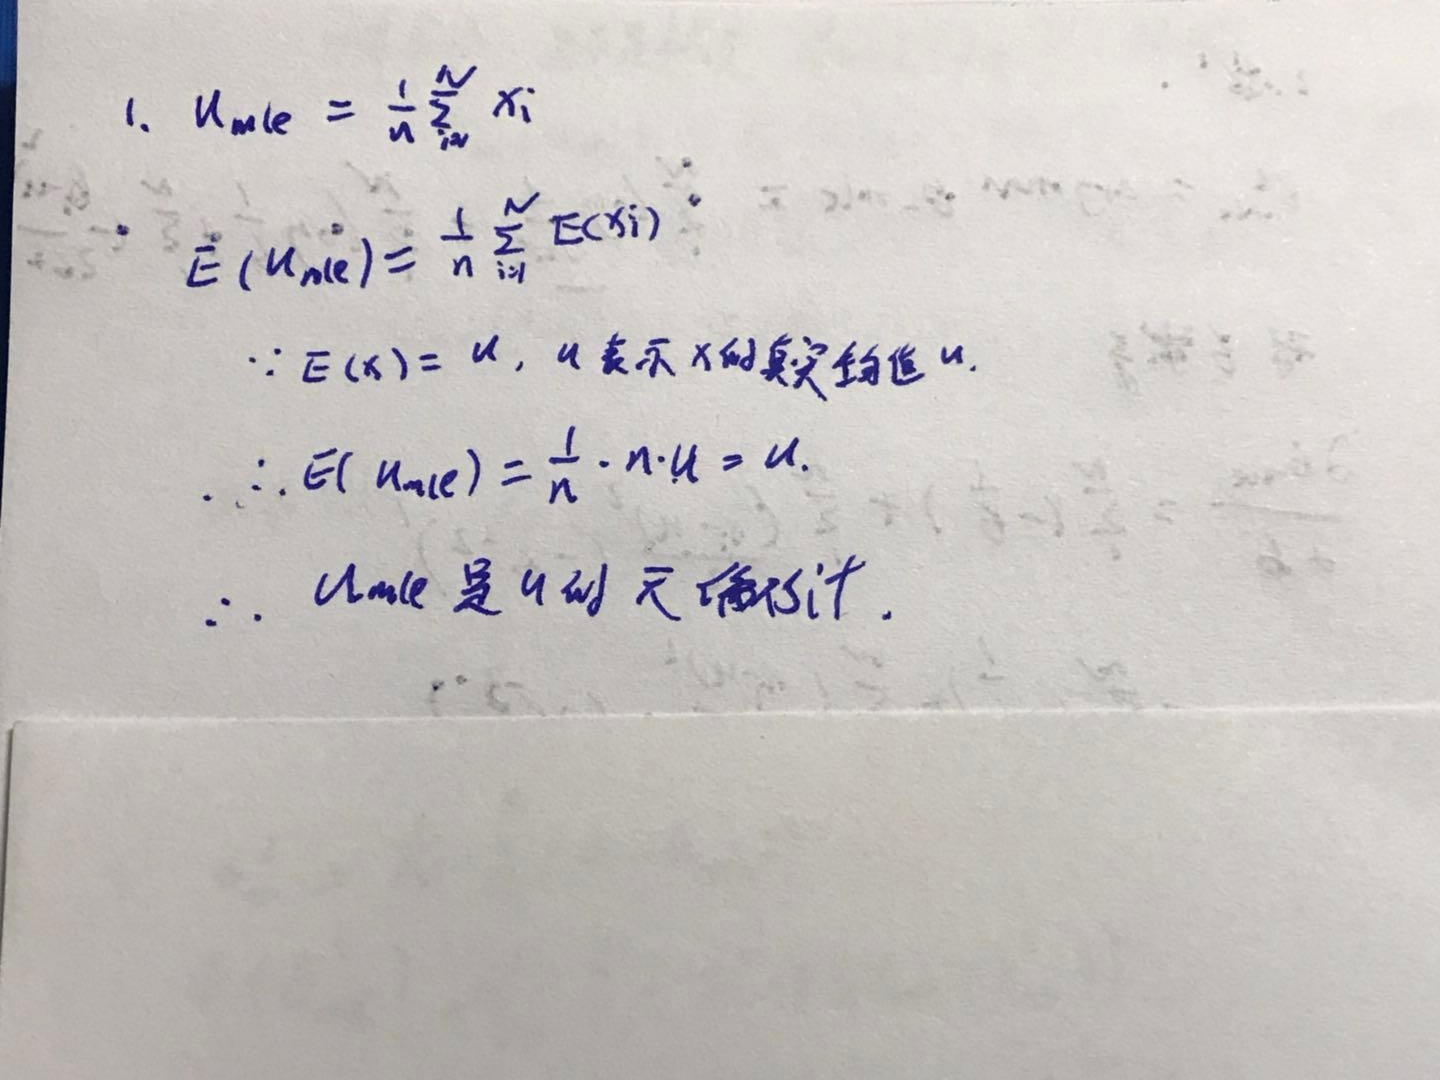 1. u_mle = 1/n Σ_{i=1}^{N} xi
E(u_mle) = 1/n Σ_{i=1}^{N} E(xi)
∵ E(x) = u, u表示x的真实均值u.
∴ E(u_mle) = 1/n · n · u = u.
∴ u_mle 是 u 的 无偏估计.